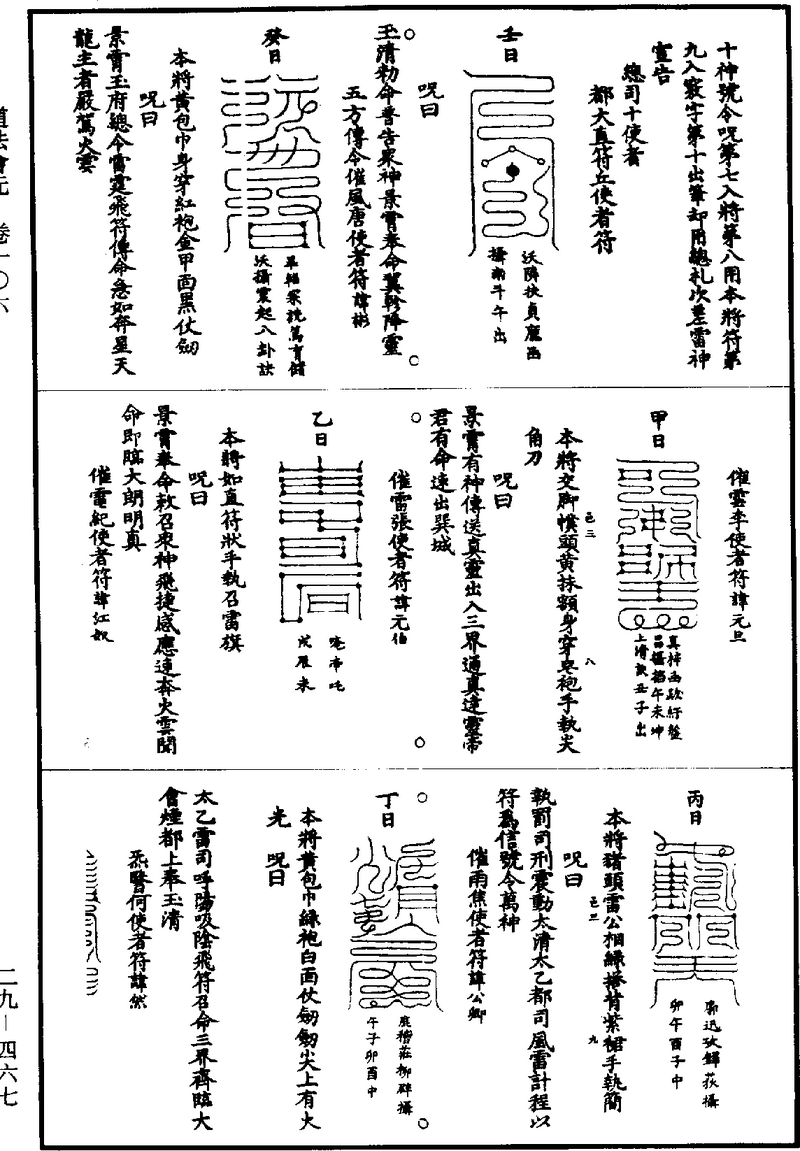 十神號令呪第七入將第八用本將符第
九入竅字第十出筆却用總札次差雷神
宣告
總司十使者
都大直符丘使者符
壬日
沃隣扶貞龐函
攝衝斗午出
呪曰
玉清勑命普告衆神景霄奉命翼軫降靈
五方傳令催風唐使者符諱彬
癸日
沃攝震起八卦訣
本將黄包巾身穿紅袍金甲面黑仗劒
呪曰
景霄玉府總令雷霆飛符傳命急如奔星天
龍主者嚴駕火雲
催雲李使者符諱元旦
甲日
上清訣丑子出
本將交脚幞頭黄抹額身穿皂袍手執尖
角刀
呪曰
景霄有神傳送真靈出入三界通真達靈帝
君有命速出巽城
催雷張使者符諱元伯
乙日
戌辰未
本將如直符狀手執召雷旗
呪曰
景霄奉命敕召衆神飛捷感應速奔火雲聞
命即臨大朗明真
催電紀使者符諱江奴
丙日
卯午酉子中
本將猪頭雷公相緑搽背紫裙手執簡
呪曰
執罰司刑震動太清太乙都司風雷計程以
符爲信號令萬神
催雨焦使者符諱公卿
丁日
午子卯酉中
本將黄包巾緑袍白面仗劒劒尖上有火
光
呪曰
太乙雷司呼陽吸陰飛符召命三界齊臨大
會煙都上奉玉清
何使者符諱然
道法會元 卷一〇六
二九—四六七